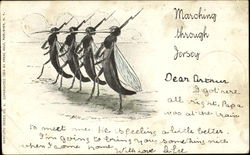 Marching
through
Jersey
Dear Arthur
I got here
all right, Papa
was at the train
to meet me. He is feeling a little better.
I'm going to bring you something nice
when I come home. With love